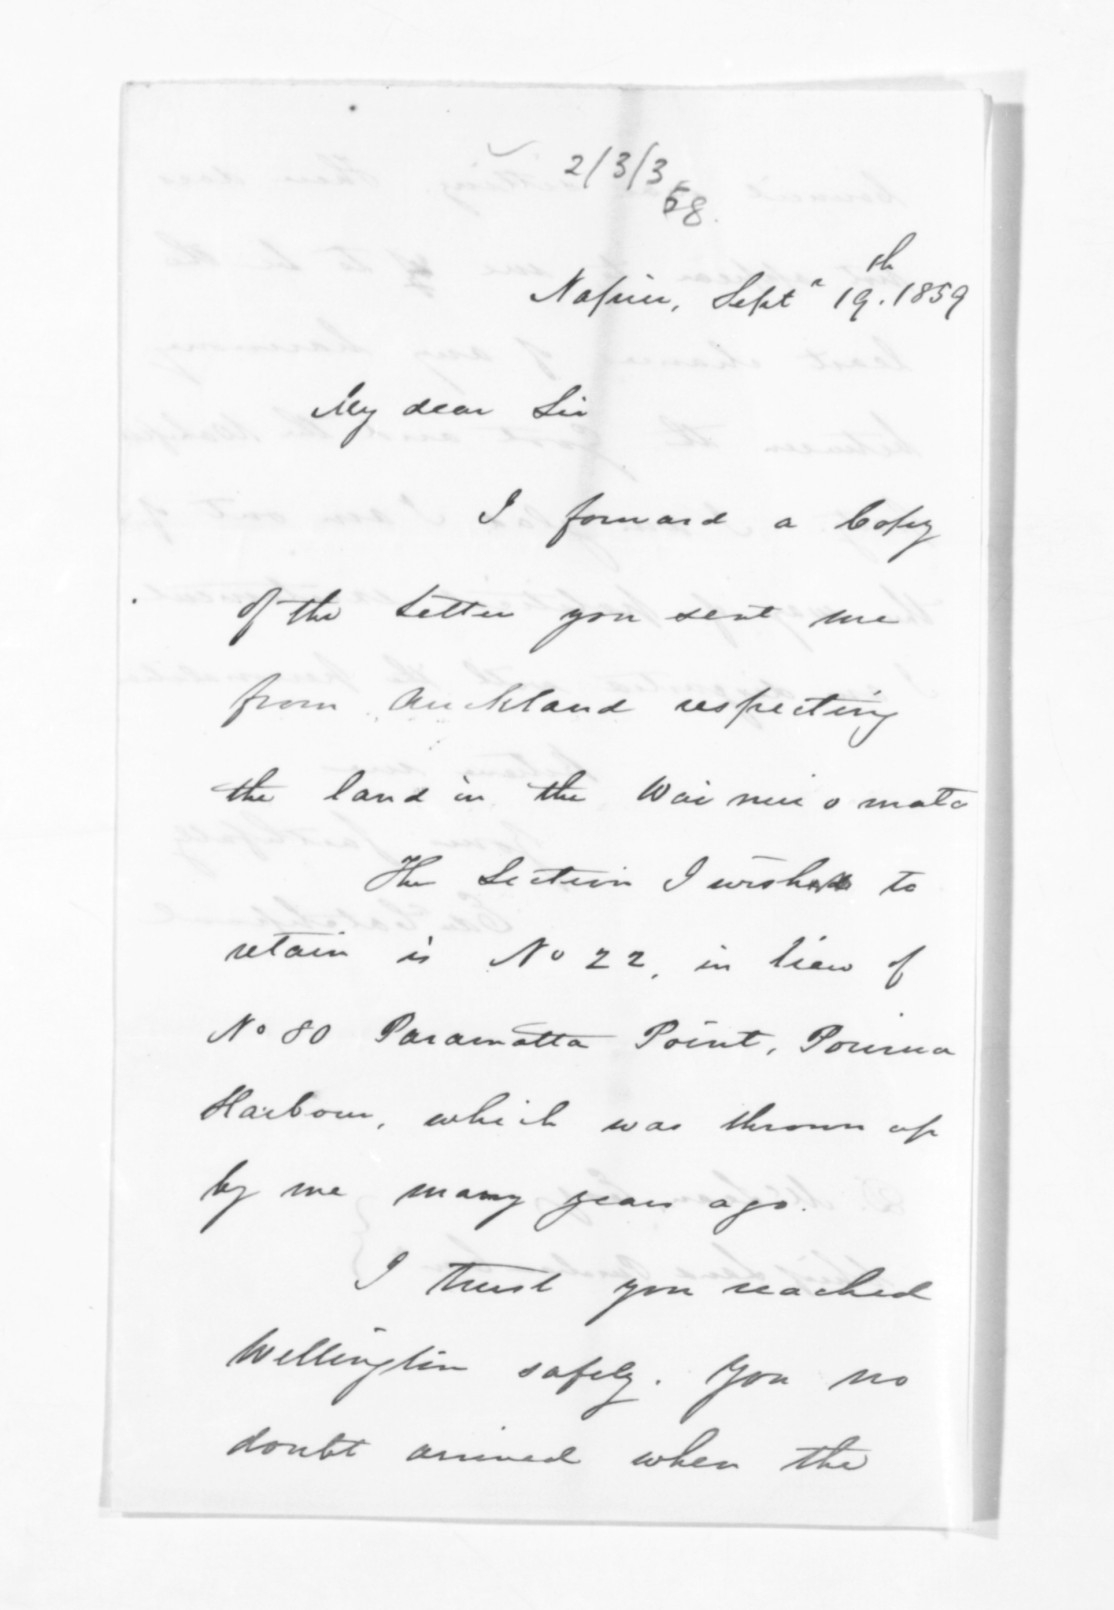 2/3/3
58.
Napier, Septr 19th. 1859
My dear Sir
I forward a Copy
of the Letter you sent me
from Auckland respecting
the land in the Wainuiomata
The Section I wish to
retain is No 22, in lieu of
No 80 Paramatta Point, Porirua
Harbour, which was thrown up
by me many years ago.
I trust you reached
Wellington safely. You no
doubt arrived when the